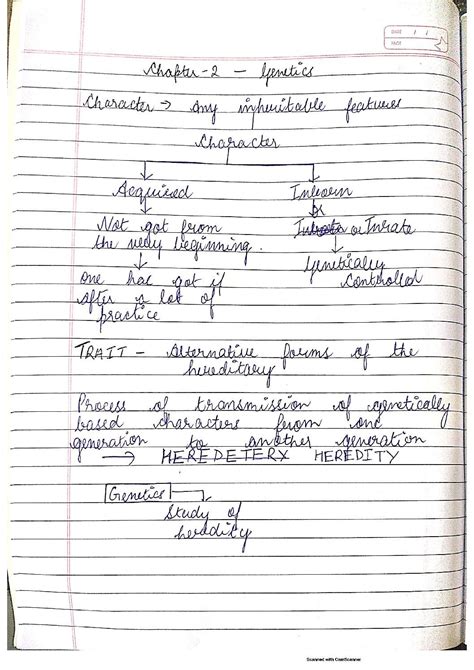 DATE / /
PAGE
Chapter-2 - Genetics
Character → Any inheritable features
Character
Acquired Inborn
or
Not got from Inborn or Inrate
the very beginning. Genetically
Controlled
one has got if
after a lot of
practice
TRAIT - Alternative forms of the
hereditary
Process of transmission of genetically
based characters from one
generation to another generation
→ HEREDETERX HEREDITY
Genetics
Study of
heredity
Scanned with CamScanner